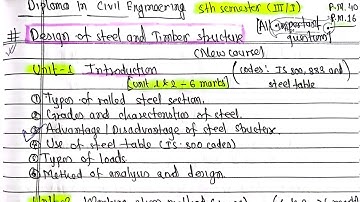 Diploma in Civil Engineering 5th semester (III/I) F.M. 40
P.M. 16
[All important questions]
# Design of steel and Timber structure
(New course)
Unit-1 Introduction (codes: IS 800, 883 and steel table
[unit 1 & 2 - 6 marks]
① Types of rolled steel section.
② Grades and characteristics of steel.
③ Advantage/Disadvantage of steel structure.
④ Use of steel table (IS:800 codes)
⑤ Types of loads
⑥ Method of analysis and design.